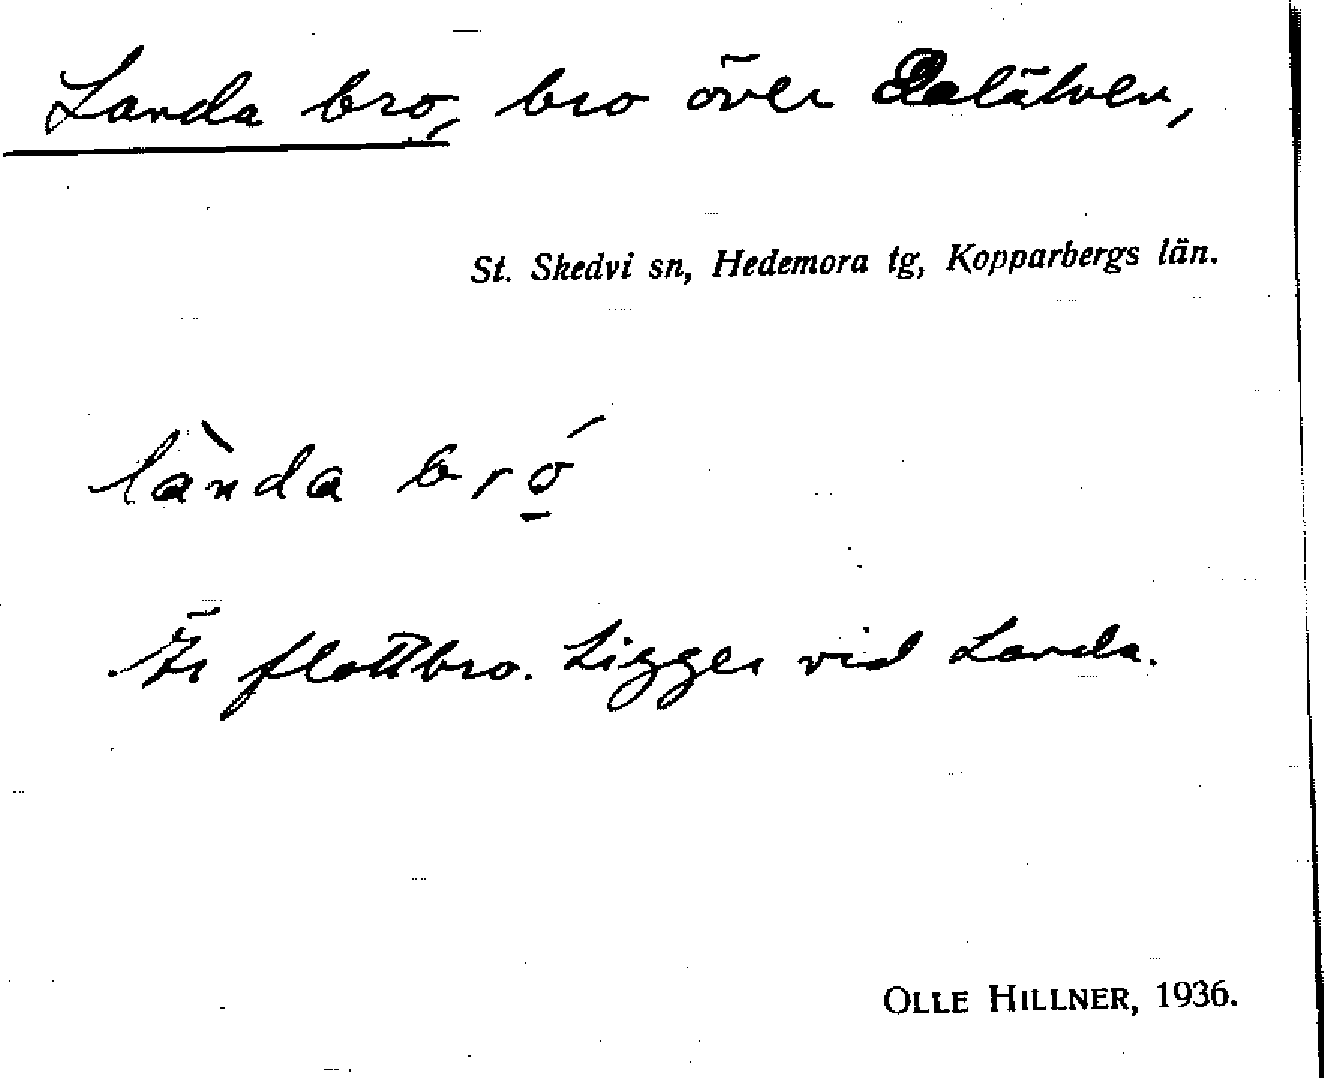 Landa bro, bro över Dalälven,
St. Skedvi sn, Hedemora tg, Kopparbergs län.
lànda bró̲
Är flottbro. Ligger vid Landa.
OLLE HILLNER, 1936.